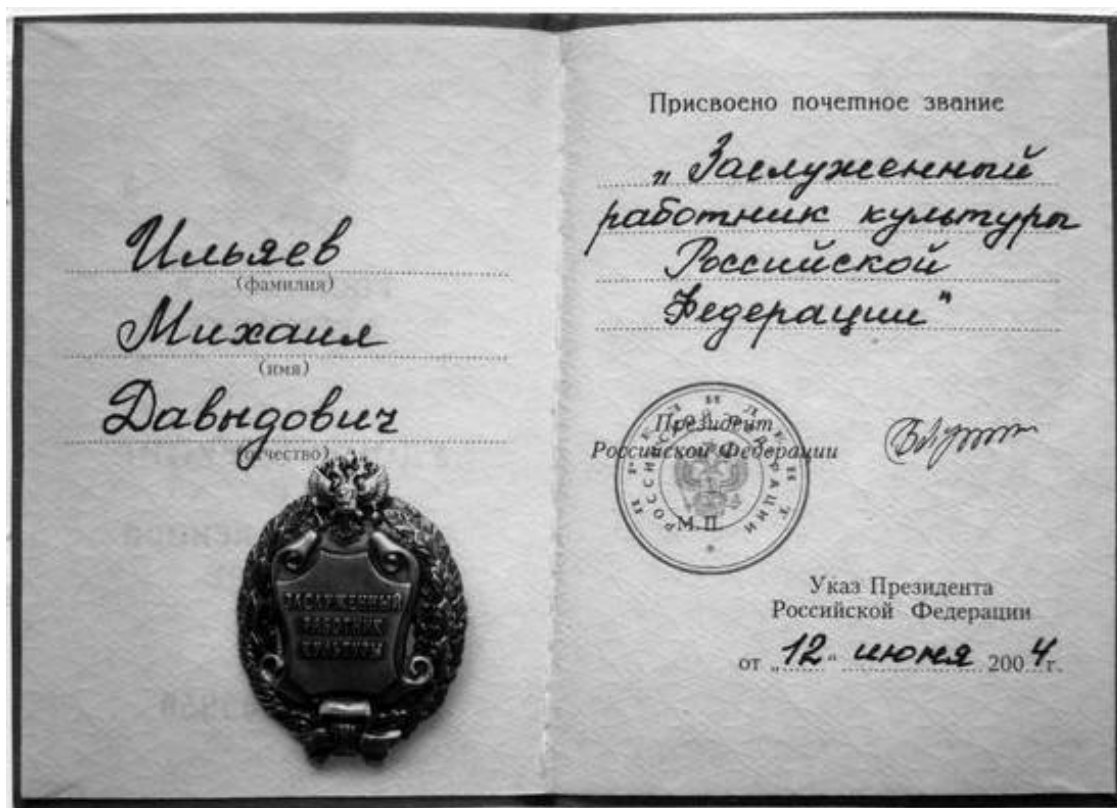 Ильяев
(фамилия)
Михаил
(имя)
Давыдович
(отчество)
ЗАСЛУЖЕННЫЙ
РАБОТНИК
КУЛЬТУРЫ
Присвоено почетное звание
„Заслуженный
работник культуры
Российской
Федерации"
Президент
Российской Федерации
М.П.
Указ Президента
Российской Федерации
от „12" июня 2004г.